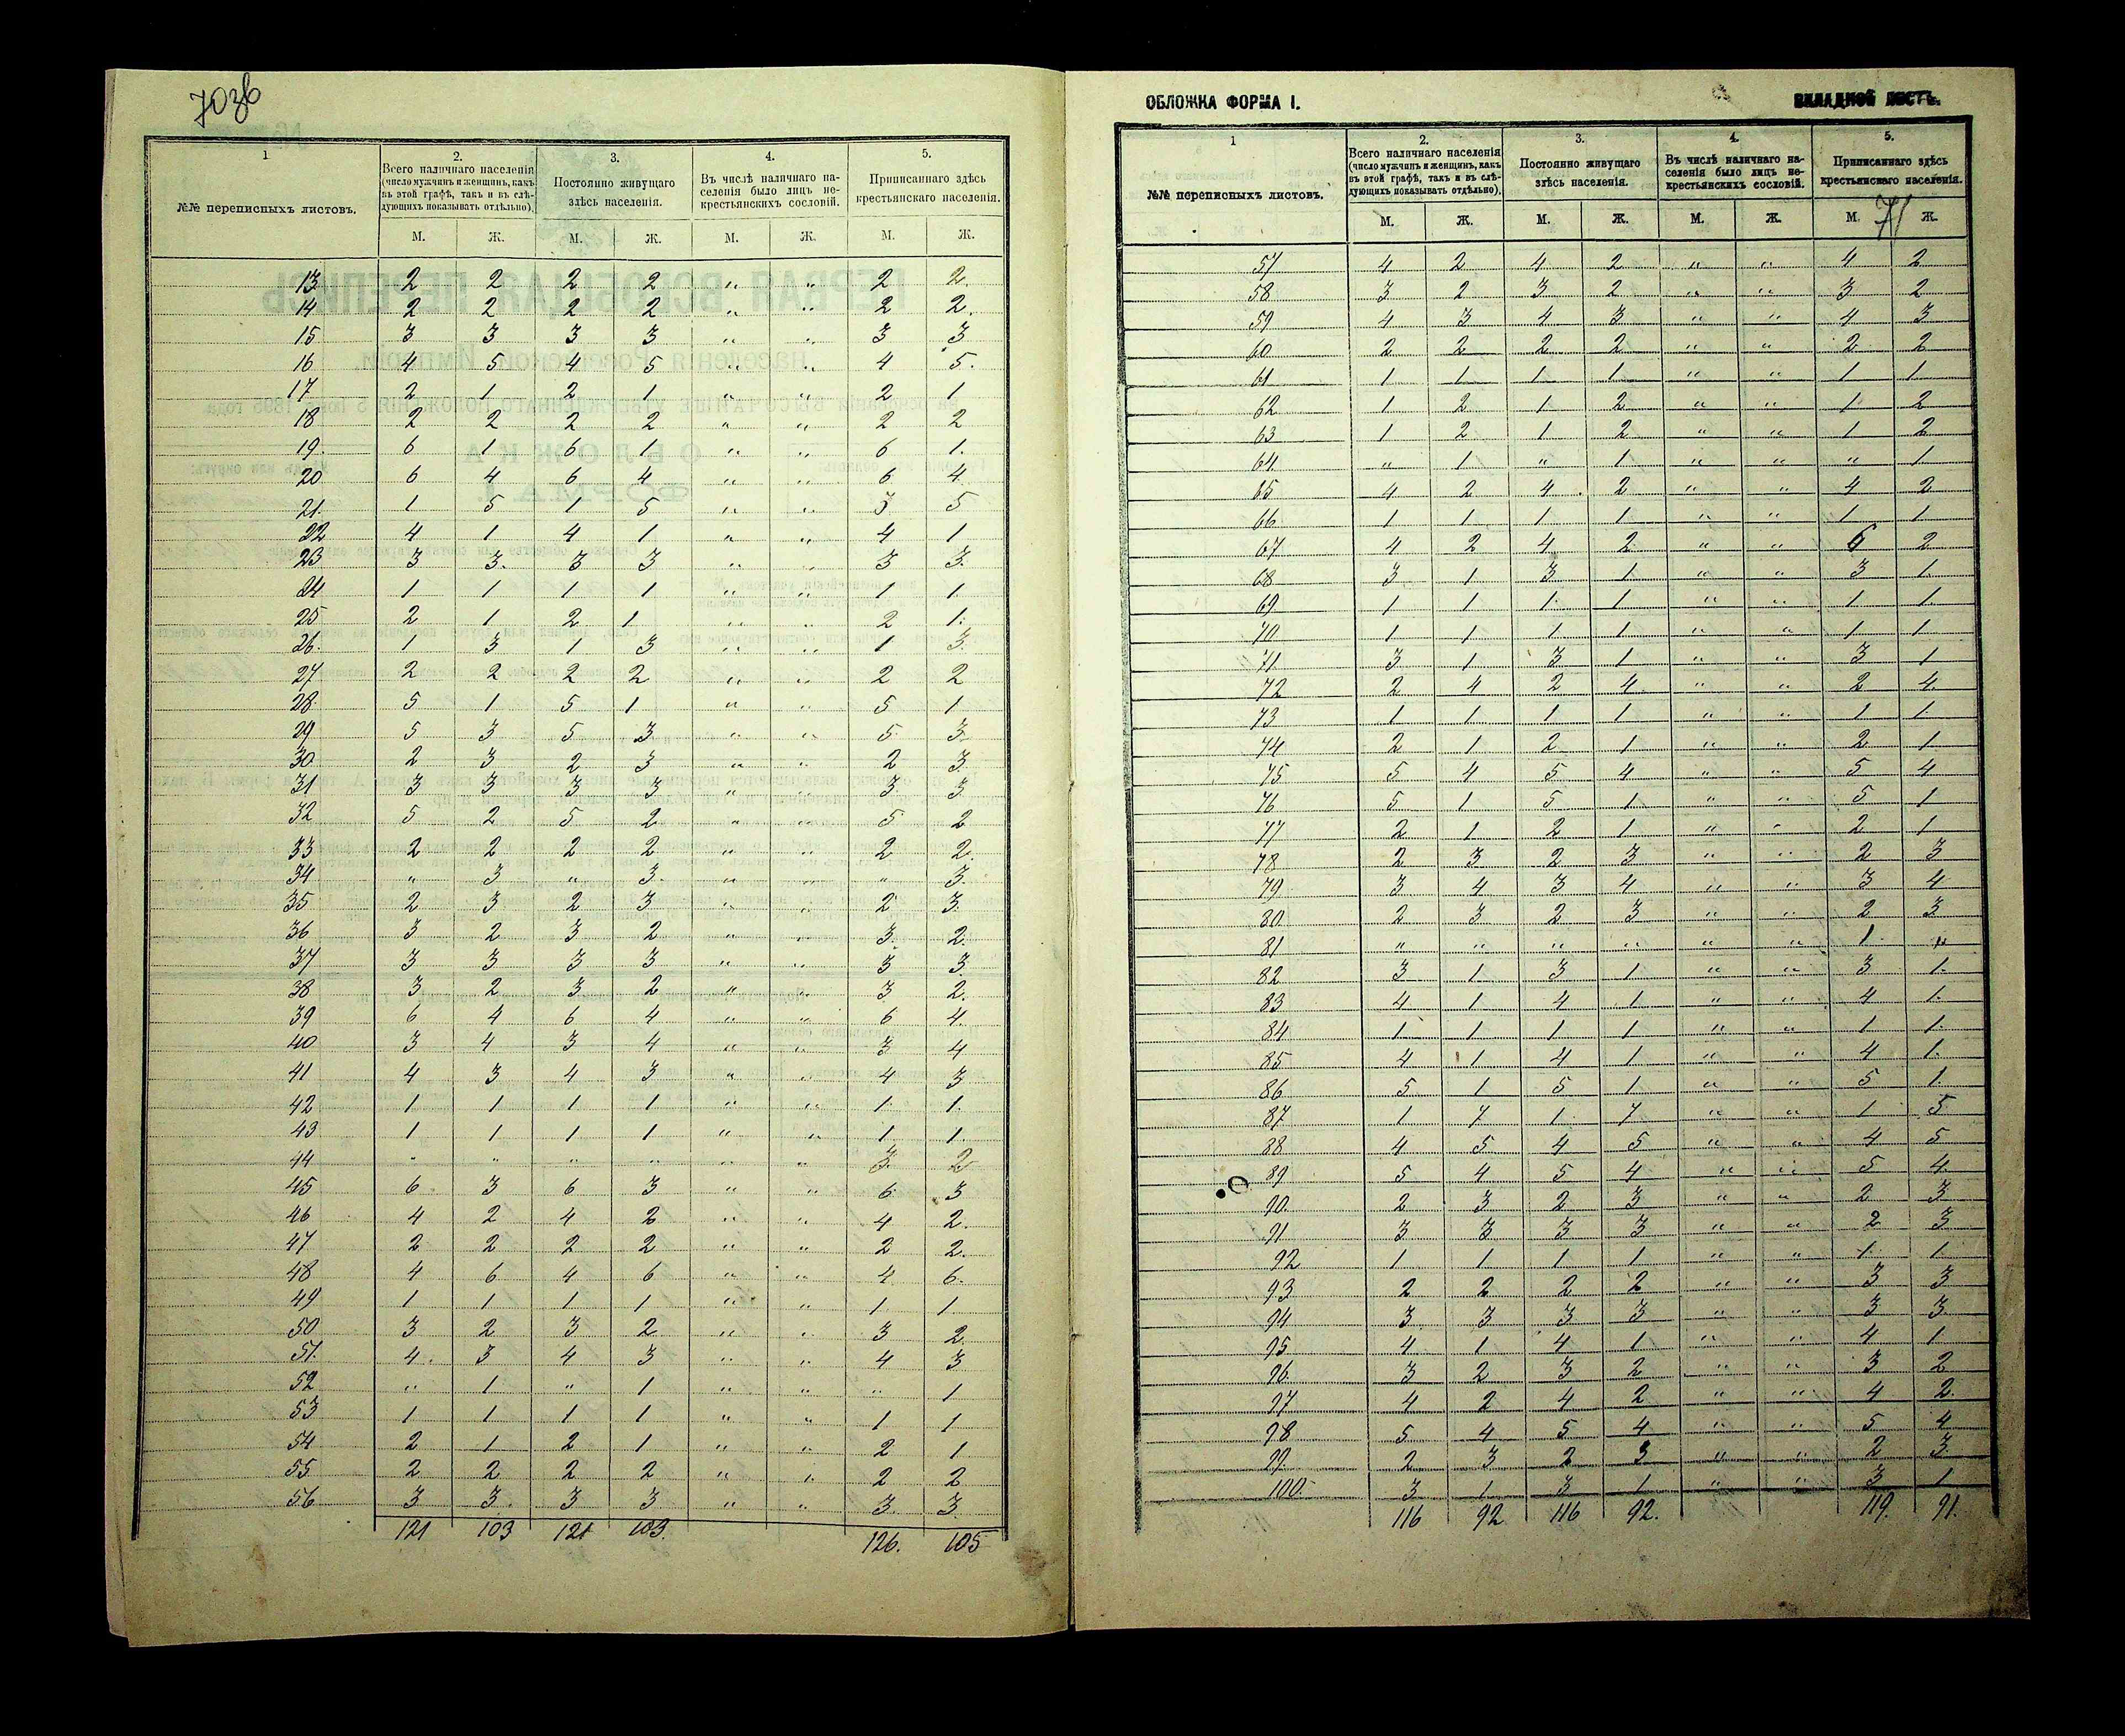 70зв
1
2.
3.
4.
5.
№№ переписныхъ листовъ.
Всего наличнаго населенія (число мужчинъ и женщинъ, какъ въ этой графѣ, такъ и въ слѣдующихъ показывать отдѣльно).
Постоянно живущаго здѣсь населенія.
Въ числѣ наличнаго населенія было лицъ некрестьянскихъ сословій.
Приписаннаго здѣсь крестьянскаго населенія.
М. Ж. М. Ж. М. Ж. М. Ж.
13 2 2 2 2 „ „ 2 2.
14 2 2 2 2 „ „ 2 2.
15 3 3 3 3 „ „ 3 3
16 4 5 4 5 „ „ 4 5.
17 2 1 2 1 „ „ 2 1
18 2 2 2 2 „ „ 2 2
19. 6 1 6 1 „ „ 6 1.
20 6 4 6 4 „ „ 6 4.
21. 1 5 1 5 „ „ 3 5
22 4 1 4 1 „ „ 4 1
23 3 3. 3 3 „ „ 3 3.
24 1 1 1 1 „ „ 1 1.
25 2 1 2 1 „ „ 2 1.
26. 1 3 1 3 „ „ 1 3.
27 2 2 2 2 „ „ 2 2
28. 5 1 5 1 „ „ 5 1
29 5 3 5 3 „ „ 5 3.
30 2 3 2 3 „ „ 2 3.
31 3 3 3 3 „ „ 3. 3.
32 5 2 5 2 „ „ 5 2
33 2 2 2 2 „ „ 2 2.
34 „ 3 „ 3. „ „ „ 3.
35 2 3 2 3 „ „ 2 3.
36 3 2 3 2 „ „ 3. 2.
37 3 3 3 3 „ „ 3 3.
38 3 2 3 2 „ „ 3 2.
39 6 4 6 4 „ „ 6 4.
40 3 4 3 4 „ „ 3 4
41 4 3 4 3 „ „ 4 3
42 1 1 1 1 „ „ 1. 1.
43 1 1 1 1 „ „ 1 1.
44 „ „ „ „ „ „ 3. 2
45 6 3 6 3 „ „ 6 3
46 4 2 4 2 „ „ 4 2.
47 2 2 2 2 „ „ 2 2.
48 4 6 4 6 „ „ 4 6.
49 1 1 1 1 „ „ 1 1.
50 3 2 3 2 „ „ 3 2
51. 4. 3 4 3 „ „ 4 3
52 „ 1 „ 1 „ „ „ 1
53 1 1 1 1 „ „ 1 1
54 2 1 2 1 „ „ 2 1
55 2 2 2 2 „ „ 2 2
56 3 3. 3 3 „ „ 3. 3.
121 103 121 103. 126. 105
ОБЛОЖКА ФОРМА I.
ВКЛАДНОЙ ЛИСТЪ.
1
2.
3.
4.
5.
№№ переписныхъ листовъ.
Всего наличнаго населенія (число мужчинъ и женщинъ, какъ въ этой графѣ, такъ и въ слѣдующихъ показывать отдѣльно).
Постоянно живущаго здѣсь населенія.
Въ числѣ наличнаго населенія было лицъ некрестьянскихъ сословій.
Приписаннаго здѣсь крестьянскаго населенія.
71
М. Ж. М. Ж. М. Ж. М. Ж.
57 4 2 4 2 „ „ 4 2
58 3 2 3 2 „ „ 3 2
59 4 3 4 3 „ „ 4 3
60 2 2 2 2 „ „ 2 2
61 1 1 1 1 „ „ 1 1
62 1 2 1 2 „ „ 1 2
63 1 2 1 2 „ „ 1 2
64 „ 1 „ 1 „ „ „ 1.
65 4 2 4 2 „ „ 4 2
66 1 1 1 1 „ „ 1 1
67 4 2 4 2 „ „ 6 2
68 3 1 3 1 „ „ 3 1.
69 1 1 1 1 „ „ 1 1.
70 1 1 1 1 „ „ 1 1.
71. 3 1 3 1 „ „ 3 1
72 2 4 2 4 „ „ 2 4.
73 1 1 1 1 „ „ 1 1.
74 2 1 2 1 „ „ 2 1
75 5 4 5 4 „ „ 5 4
76 5 1 5 1 „ „ 5 1
77 2 1 2 1 „ „ 2 1
78 2 3 2 3 „ „ 2 3
79 3 4 3 4 „ „ 3 4
80 2 3 2 3 „ „ 2 3
81 „ „ „ „ „ „ 1. „
82 3 1 3 1 „ „ 3 1.
83 4 1 4 1 „ „ 4 1.
84 1 1 1 1 „ „ 1 1.
85 4 1 4 1 „ „ 4 1.
86 5 1 5 1 „ „ 5 1.
87 1 7 1 7 „ „ 1 5
88 4 5 4 5 „ „ 4 5
89 5 4 5 4 „ „ 5 4.
90. 2 3 2 3 „ „ 2 3
91 3 3 3 3 „ „ 2 3
92 1 1 1 1 „ „ 1. 1.
93 2 2 2 2 „ „ 3 3
94 3 3 3 3 „ „ 3 3.
95 4 1 4 1 „ „ 4 1
96. 3 2 3 2 „ „ 3 2
97 4 2 4 2 „ „ 4 2.
98 5 4 5 4 „ „ 5 4
99 2 3 2 3 „ „ 2 3.
100. 3 1 3 1 „ „ 3 1
116 92 116 92. 119. 91.